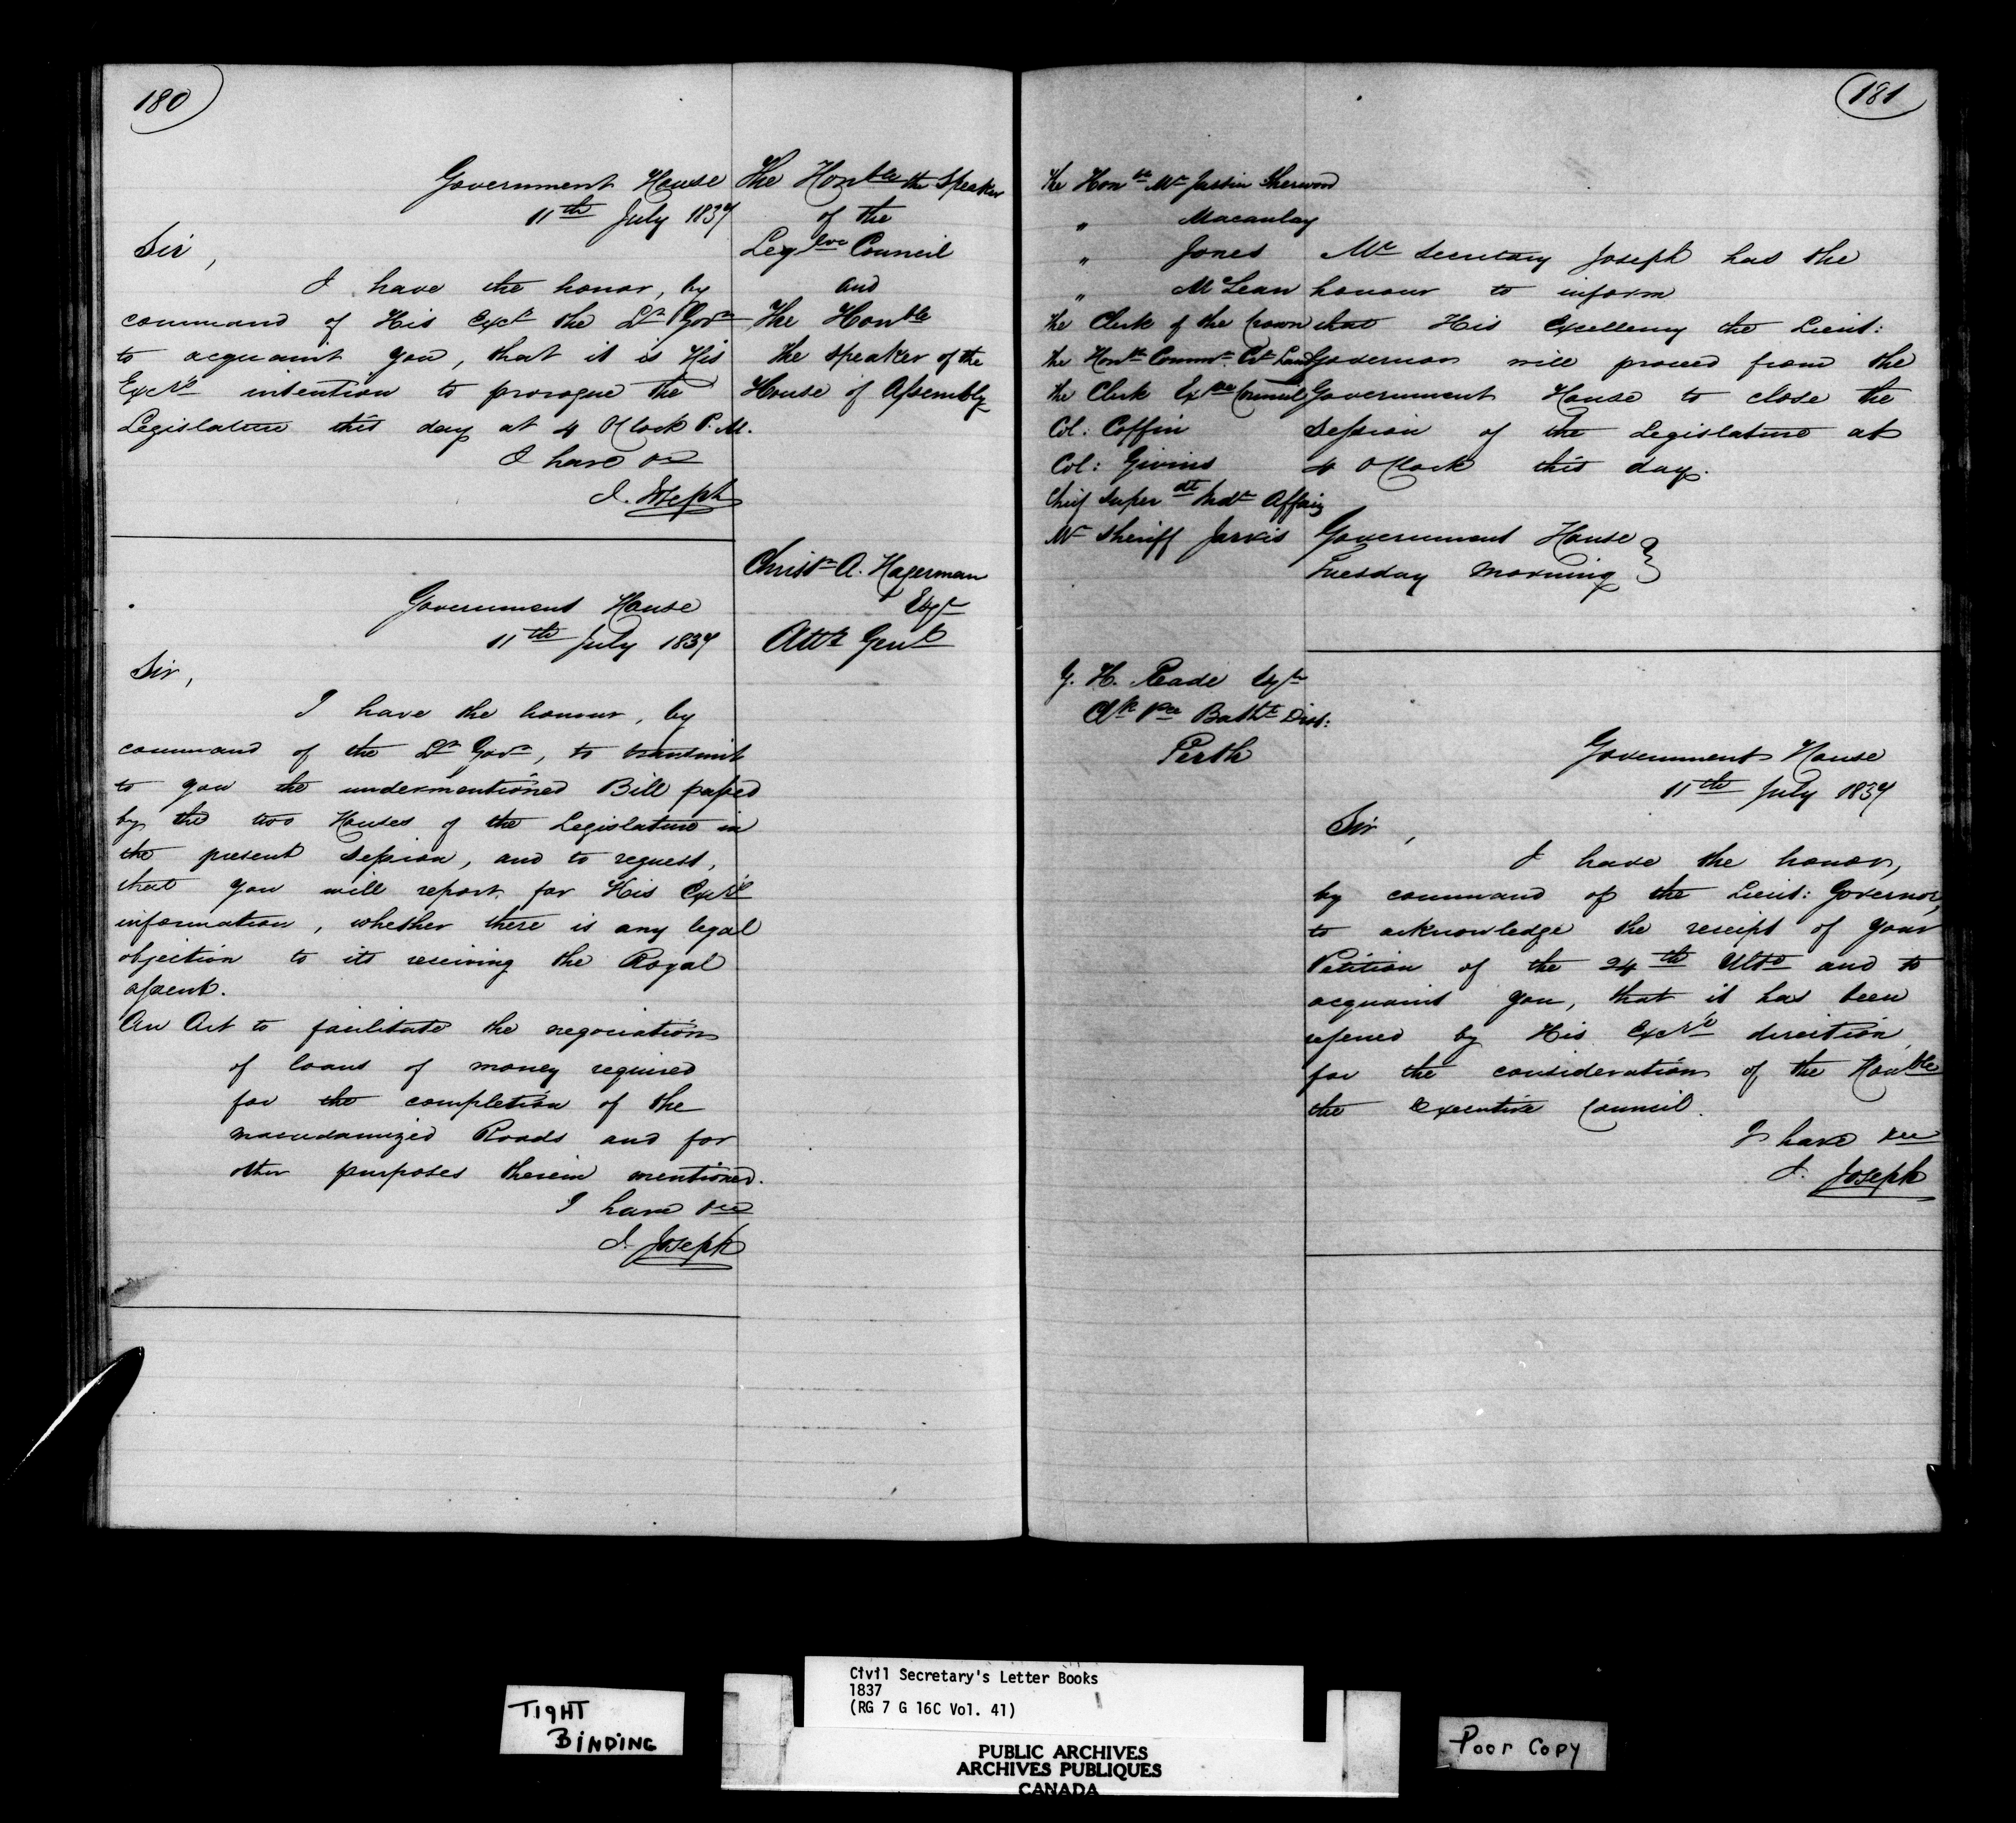 180
Government House
11th July 1837
Sir,
I have the honor, by
command of His Excy the Lt Govr
to acquaint you, that it is His
Excy's intention to prorogue the
Legislature this day at 4 OClock P.M.
I have &c
J. Joseph
The Honble the Speaker
of the
Legive Council
and
The Honble
the Speaker of the
House of Assembly
Government House
11th July 1837
Sir,
I have the honour, by
command of the Lt Govr, to transmit
to you the undermentioned Bill passed
by the two Houses of the Legislature in
the present Session, and to request,
that you will report for His Excy's
information, whether there is any legal
objection to its receiving the Royal
assent.
An Act to facilitate the negociation
of loans of money required
for the completion of the
macadamized Roads and for
other purposes therein mentioned.
I have &c
J. Joseph
Christr A. Hagerman
Esqr
Atty Genl
181
The Honble Mr Justice Sherwood
" Macaulay
" Jones
" McLean
the Clerk of the Crown
the Honble Commr Cn Lands
the Clerk Exve Council
Col: Coffin
Col: Givins
Chief Superdt Indn Affairs
Mr Sheriff Jarvis
Mr Secretary Joseph has the
honour to inform
that His Excellency the Lieut:
Governor will proceed from the
Government House to close the
Session of the Legislature at
4 OClock this day.
Government House
Tuesday Morning }
G. H. Reade Esqr
Clk Pce Batht Dist:
Perth
Government House
11th July 1837
Sir,
I have the honor,
by command of the Lieut: Governor,
to acknowledge the receipt of your
Petition of the 24th Ulto and to
acquaint you, that it has been
referred by His Excy's direction,
for the consideration of the Honble
the Executive Council.
I have &c
J. Joseph
TIGHT
BINDING
Civil Secretary's Letter Books
1837
(RG 7 G 16C Vol. 41)
PUBLIC ARCHIVES
ARCHIVES PUBLIQUES
CANADA
Poor Copy